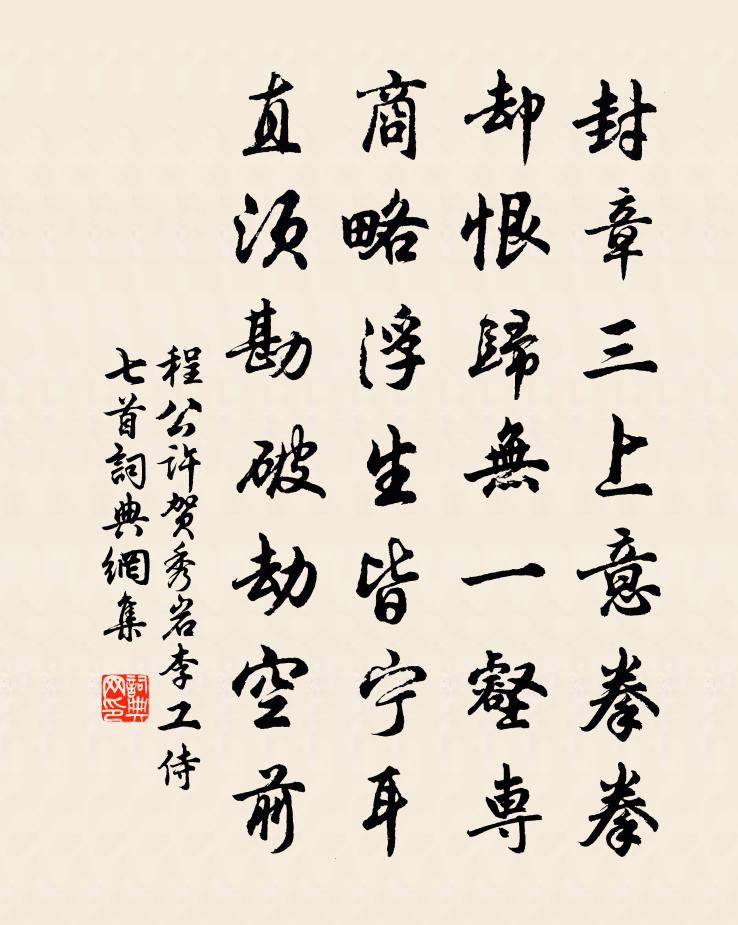 封章三上意拳拳
却恨歸無一壑専
商略浮生皆宁耳
直須勘破劫空前
程公許贺秀岩李工侍
七首詞典網集
詞典网印